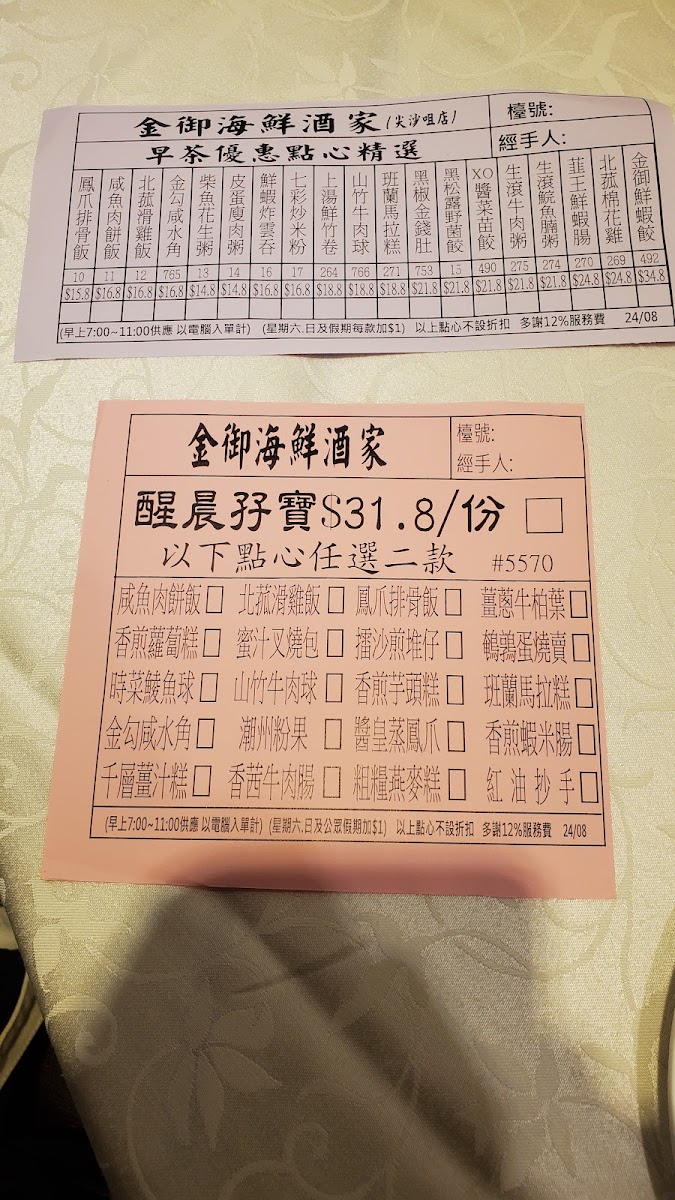 金御海鮮酒家(尖沙咀店)
檯號:
早茶優惠點心精選
經手人:
鳳爪排骨飯 10 $15.8
咸魚肉餅飯 11 $16.8
北菰滑雞飯 12 $16.8
金勾咸水角 765 $16.8
柴魚花生粥 13 $14.8
皮蛋廋肉粥 14 $14.8
鮮蝦炸雲吞 16 $16.8
七彩炒米粉 17 $16.8
上湯鮮竹卷 264 $18.8
山竹牛肉球 766 $18.8
班蘭馬拉糕 271 $18.8
黑椒金錢肚 753 $21.8
黑松露野菌餃 15 $21.8
XO醬菜苗餃 490 $21.8
生滾牛肉粥 275 $21.8
生滾鯇魚腩粥 274 $21.8
韮王鮮蝦腸 270 $24.8
北菰棉花雞 269 $24.8
金御鮮蝦餃 492 $34.8
(早上7:00~11:00供應 以電腦入單計) (星期六.日及假期每款加$1) 以上點心不設折扣 多謝12%服務費 24/08
金御海鮮酒家
檯號:
經手人:
醒晨孖寶$31.8/份
以下點心任選二款 #5570
咸魚肉餅飯 北菰滑雞飯 鳳爪排骨飯 薑蔥牛柏葉
香煎蘿蔔糕 蜜汁叉燒包 擂沙煎堆仔 鵪鶉蛋燒賣
時菜鯪魚球 山竹牛肉球 香煎芋頭糕 班蘭馬拉糕
金勾咸水角 潮州粉果 醬皇蒸鳳爪 香煎蝦米腸
千層薑汁糕 香茜牛肉腸 粗糧燕麥糕 紅油抄手
(早上7:00~11:00供應 以電腦入單計) (星期六.日及公眾假期加$1) 以上點心不設折扣 多謝12%服務費 24/08